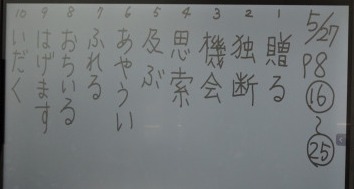 5/27
P8
⑯
〜
㉕
1 贈る
2 独断
3 機会
4 思索
5 及ぶ
6 あやうい
7 ふれる
8 おちいる
9 はげます
10 いだく